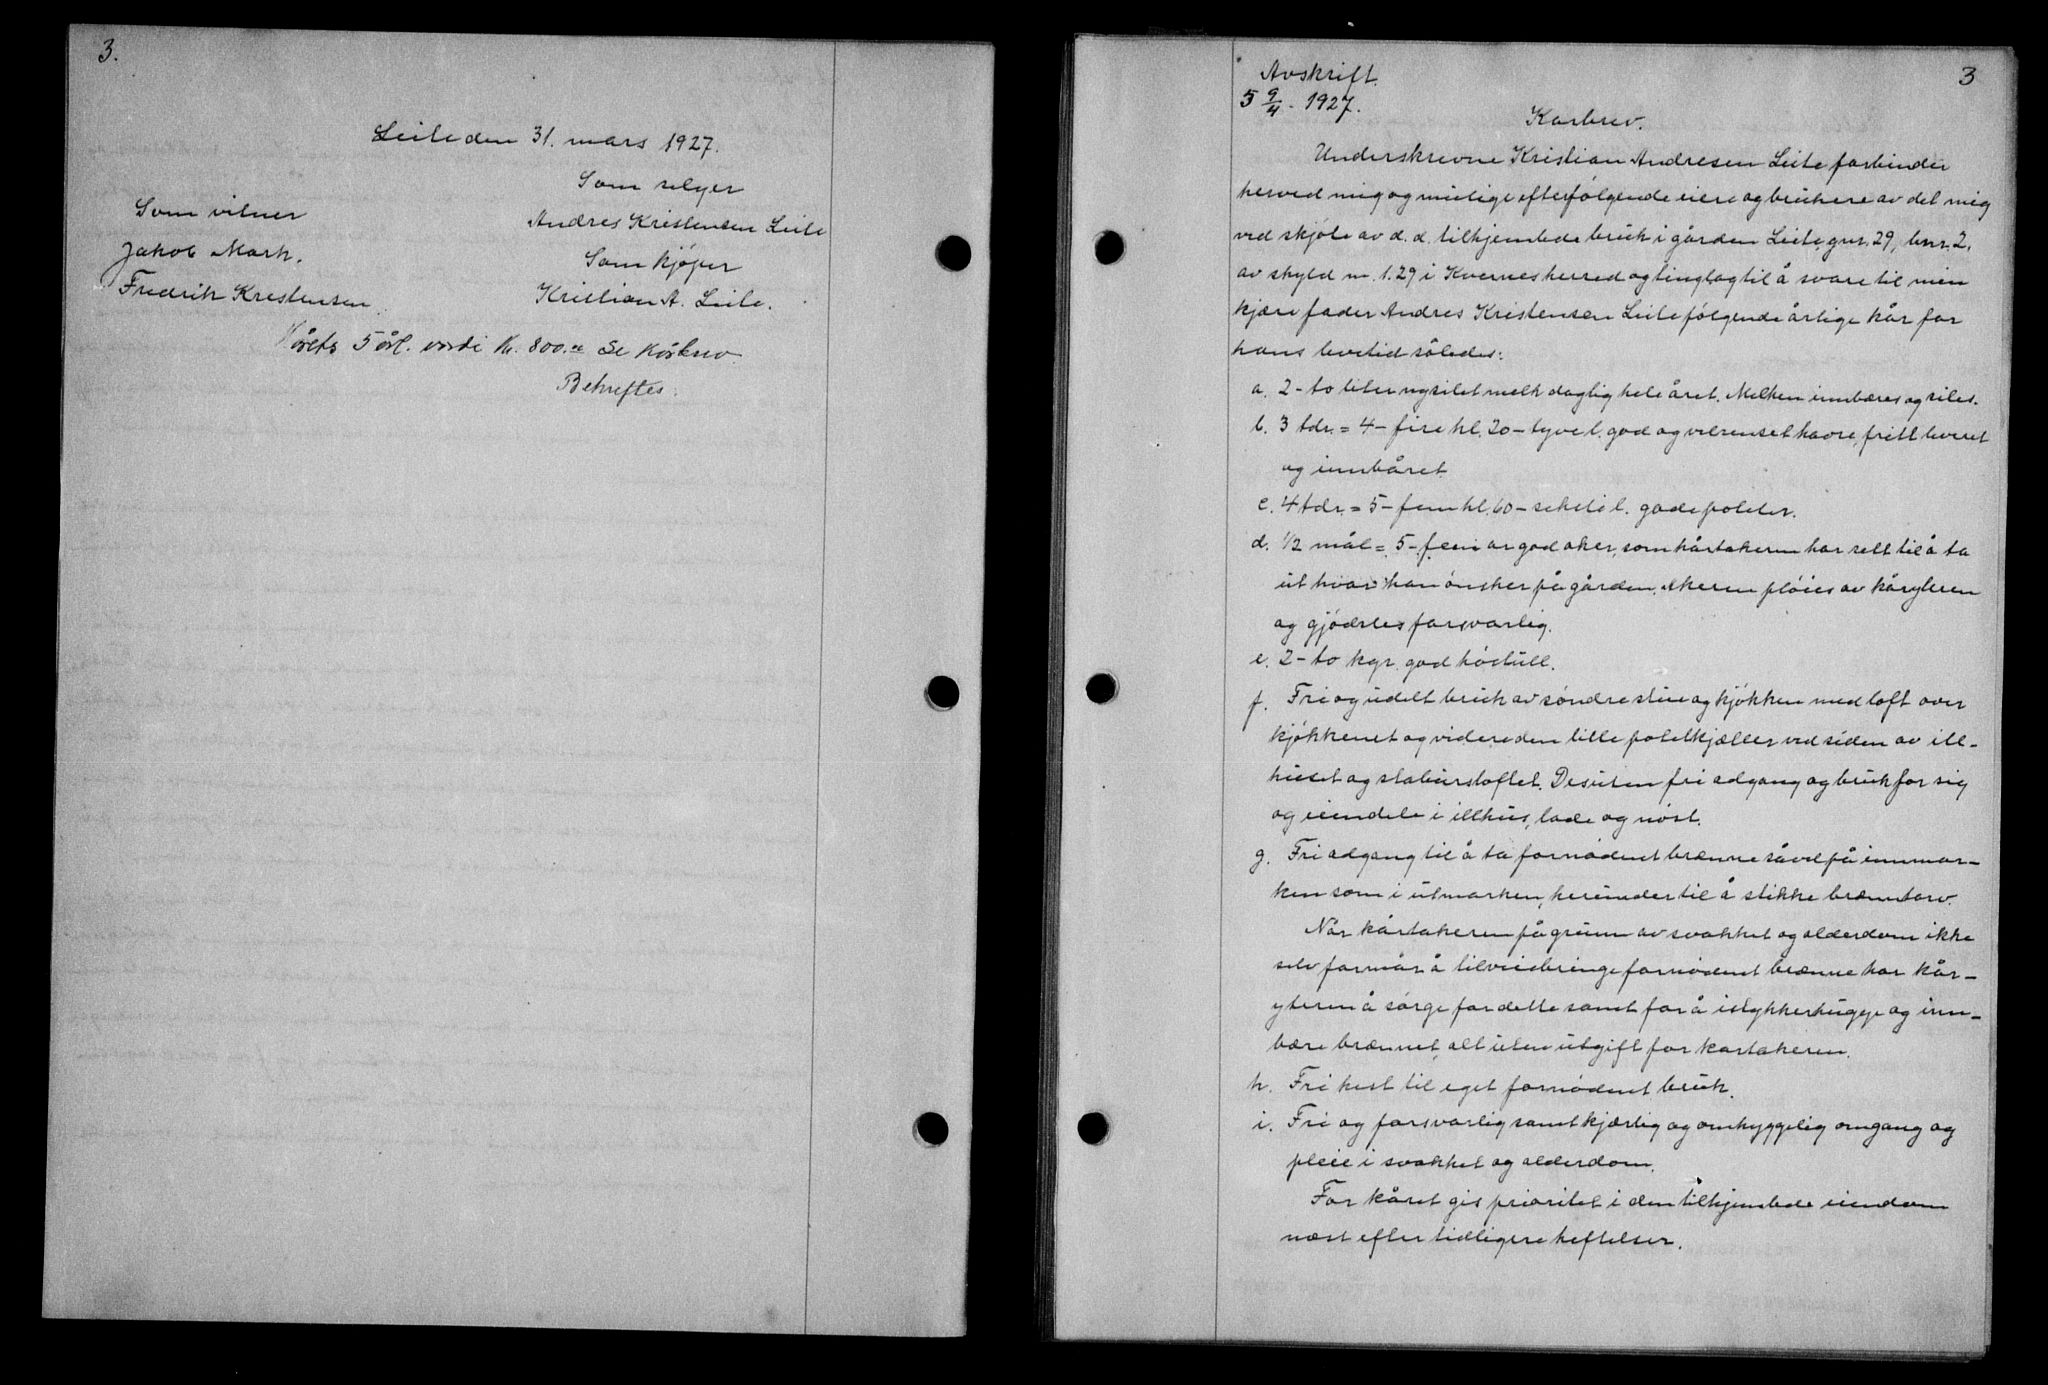 3.
Leite den 31. mars 1927.
Som selger
Andres Kristensen Leite
Som kjøper
Kristian A. Leite.
Som vitner
Jakob Mork.
Fredrik Kristensen.
Kårets 5 årl. verdi kr. 800.00 Se kårbrev.
Bekreftes:
3
Avskrift.
5 9/4 - 1927.
Kårbrev.
Underskrevne Kristian Andresen Leite forbinder
herved mig og mulige efterfølgende eiere og brukere av det mig
ved skjøte av d. d. tilhjemlede bruk i gården Leite, gnr. 29, bnr. 2.
av skyld m. 1.29 i Kvernes herred og tinglag til å svare til min
kjære fader Andres Kristensen Leite følgende årlige kår for
hans levetid således:
a. 2 - to liter nysilet melk daglig hele året. Melken innbæres og siles.
b. 3 tdr. = 4 - fire hl. 20 - tyve l. god og velrenset havre, fritt levert
og innbåret.
c. 4 tdr. = 5 - fem hl. 60 - seksti l. gode poteter.
d. 1/2 mål = 5 - fem ar god aker, som kårtakeren har rett til å ta
ut hvor han ønsker på gården. Akeren pløies av kåryteren
og gjødsles forsvarlig.
e. 2 - to kgr. god høstull.
f. Fri og udelt bruk av søndre stue og kjøkken med loft over
kjøkkenet og videre den lille potetkjæller ved siden av ill-
huset og stabursloftet. Desuten fri adgang og bruk for sig
og eiendele i illhus, lade og nøst.
g. Fri adgang til å ta fornødent brenne såvel på innmar-
ken som i utmarken, herunder til å stikke brenntorv.
Når kårtakeren på grunn av svakhet og alderdom ikke
selv formår å tilveiebringe fornødent brenne har kår-
yteren å sørge for dette samt for å istykkerhugge og inn-
bære brennet, alt uten utgift for kartakeren.
h. Fri hest til eget fornødent bruk.
i. Fri og forsvarlig samt kjærlig og omhyggelig omgang og
pleie i svakhet og alderdom.
For kåret gis prioritet i den tilhjemlede eiendom
næst efter tidligere heftelser.